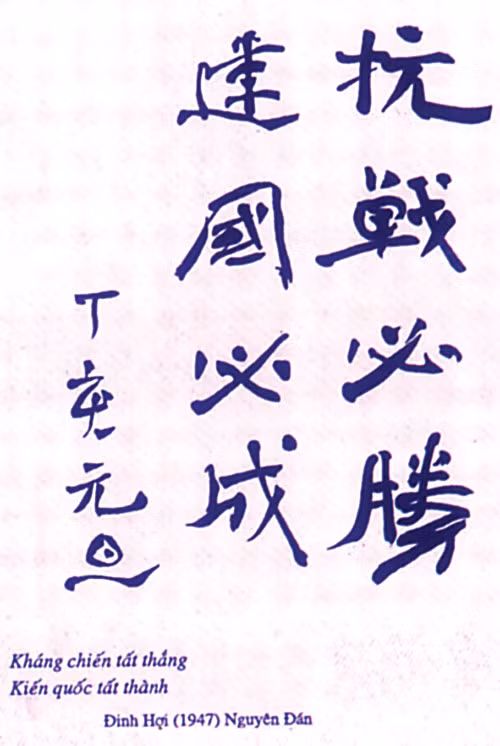 抗戦必勝
建國必成
丁亥元旦
Kháng chiến tất thắng
Kiến quốc tất thành
Đinh Hợi (1947) Nguyên Đán